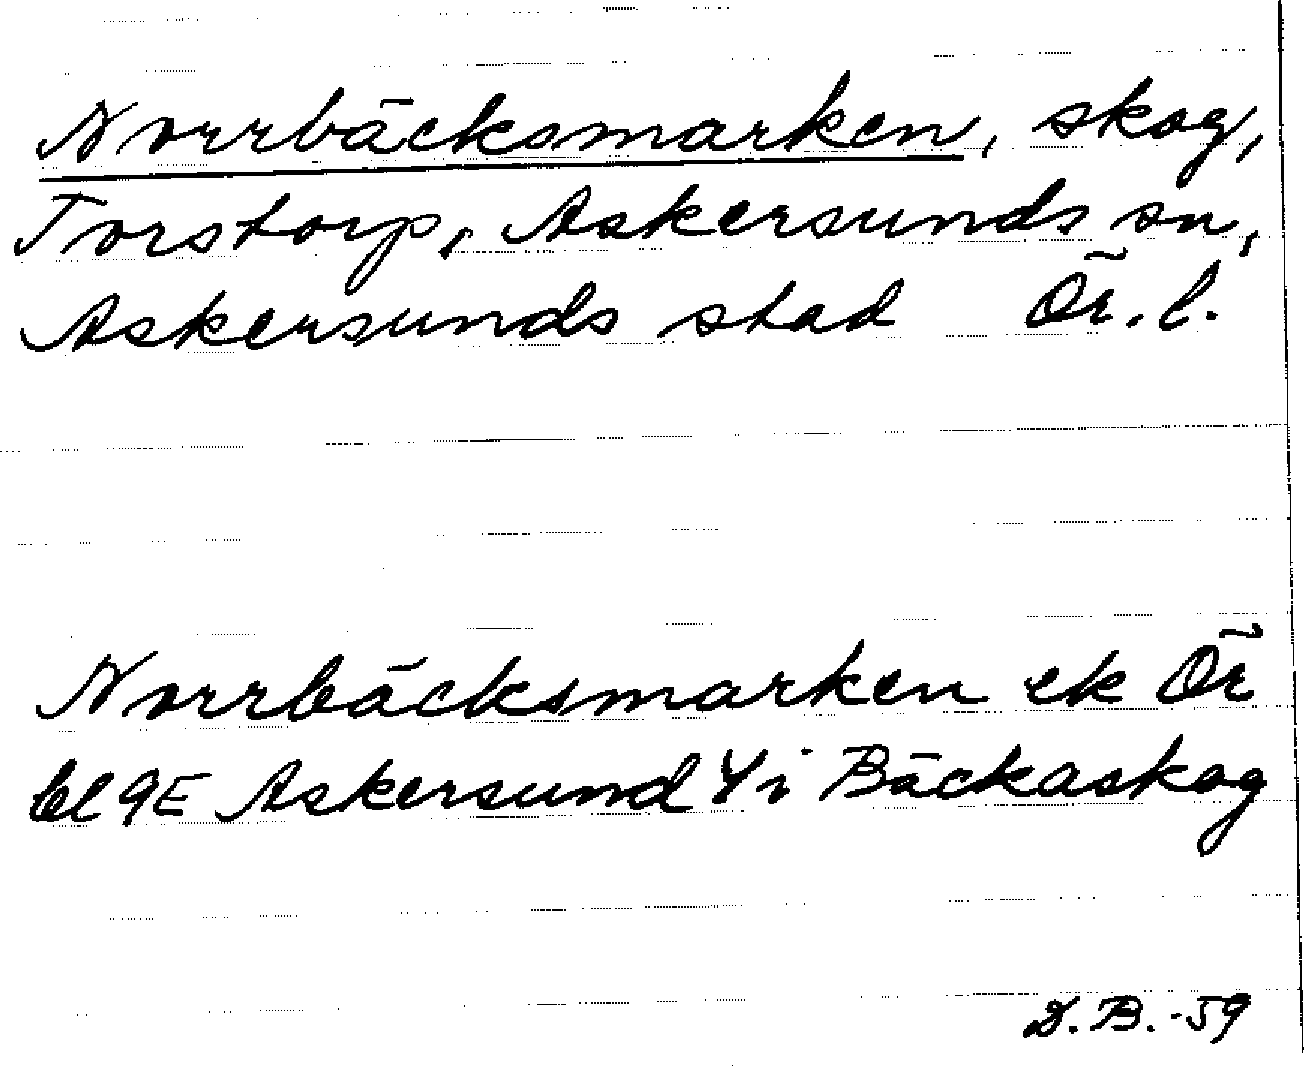 Norrbäcksmarken, skog,
Torstorp, Askersunds sn,
Askersunds stad Ör. l.
Norrbäcksmarken ek Ör
bl 9E Askersund 4i Bäckaskog
D.B.-59